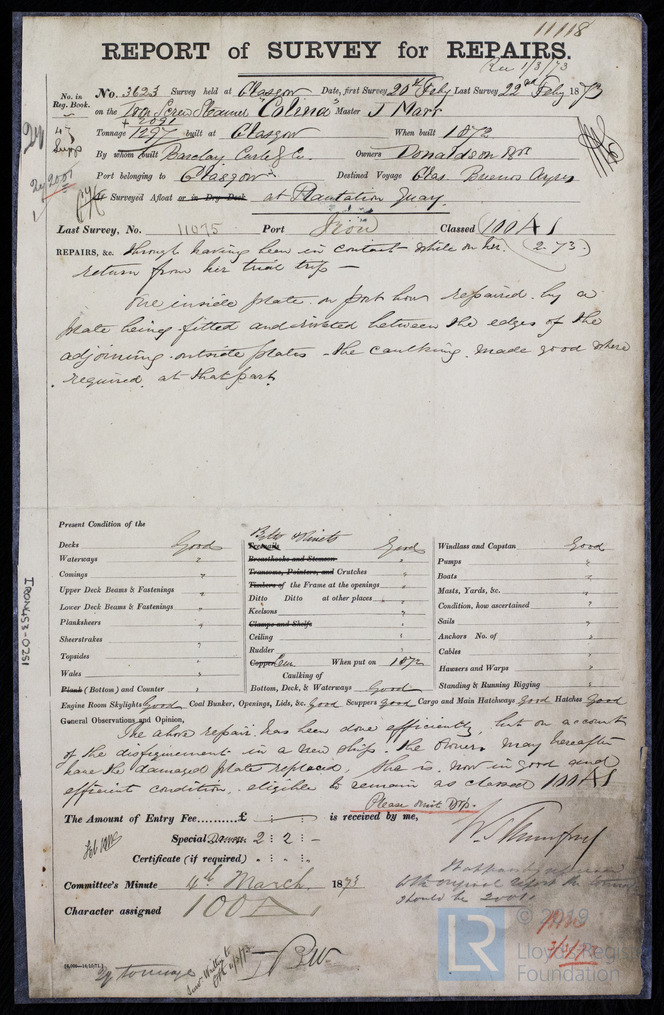 11118
REPORT of SURVEY for REPAIRS.
Rec 1/3/73
No. in Reg. Book.
No. 3623 Survey held at Glasgow Date, first Survey 20th Feby Last Survey 22nd Feby 1873
on the Iron Screw Steamer "Colina" Master J Marr
Tonnage 1297 built at Glasgow When built 1872
By whom built Barclay Curle & Co. Owners Donaldson Bros
Port belonging to Glasgow Destined Voyage Glas. Buenos Ayres
Surveyed Afloat or in Dry Dock at Plantation Quay.
Last Survey, No. 11075 Port Iron Classed 100 A1
REPAIRS, &c. through having been in contact while on her (2.73.)
return from her trial trip —
One inside plate on port bow repaired by a
plate being fitted and rivetted between the edges of the
adjoining outside plates - the caulking made good where
required at that part
IRON453-0251
Present Condition of the
Decks Good
Waterways "
Comings "
Upper Deck Beams & Fastenings "
Lower Deck Beams & Fastenings "
Planksheers "
Sheerstrakes "
Topsides "
Wales "
Plank (Bottom) and Counter "
Treenails Good
Breasthooks and Stemson
Transoms, Pointers, and Crutches "
Timbers of the Frame at the openings "
Ditto Ditto at other places "
Keelsons "
Clamps and Shelfs
Ceiling "
Rudder "
Copper When put on 1872
Caulking of
Bottom, Deck, & Waterways Good
Windlass and Capstan Good
Pumps "
Boats "
Masts, Yards, &c. "
Condition, how ascertained "
Sails "
Anchors No. of "
Cables "
Hawsers and Warps "
Standing & Running Rigging "
Engine Room Skylights Good Coal Bunker, Openings, Lids, &c. Good Scuppers Good Cargo and Main Hatchways Good Hatches Good
General Observations and Opinion,
The above repair has been done efficiently, but on account
of the disfigurement in a new ship. the owners may hereafter
have the damaged plate replaced, She is now in good and
efficient condition. eligible to remain as classed 100A1
Please omit Drp.
The Amount of Entry Fee..........£ : : is received by me,
Special 2 : 2 : -
Certificate (if required) . : . : .
Committee's Minute 4th March 1873
Character assigned 100 A1
should be 2001
© 2019
Lloyd's Register
Foundation
LR